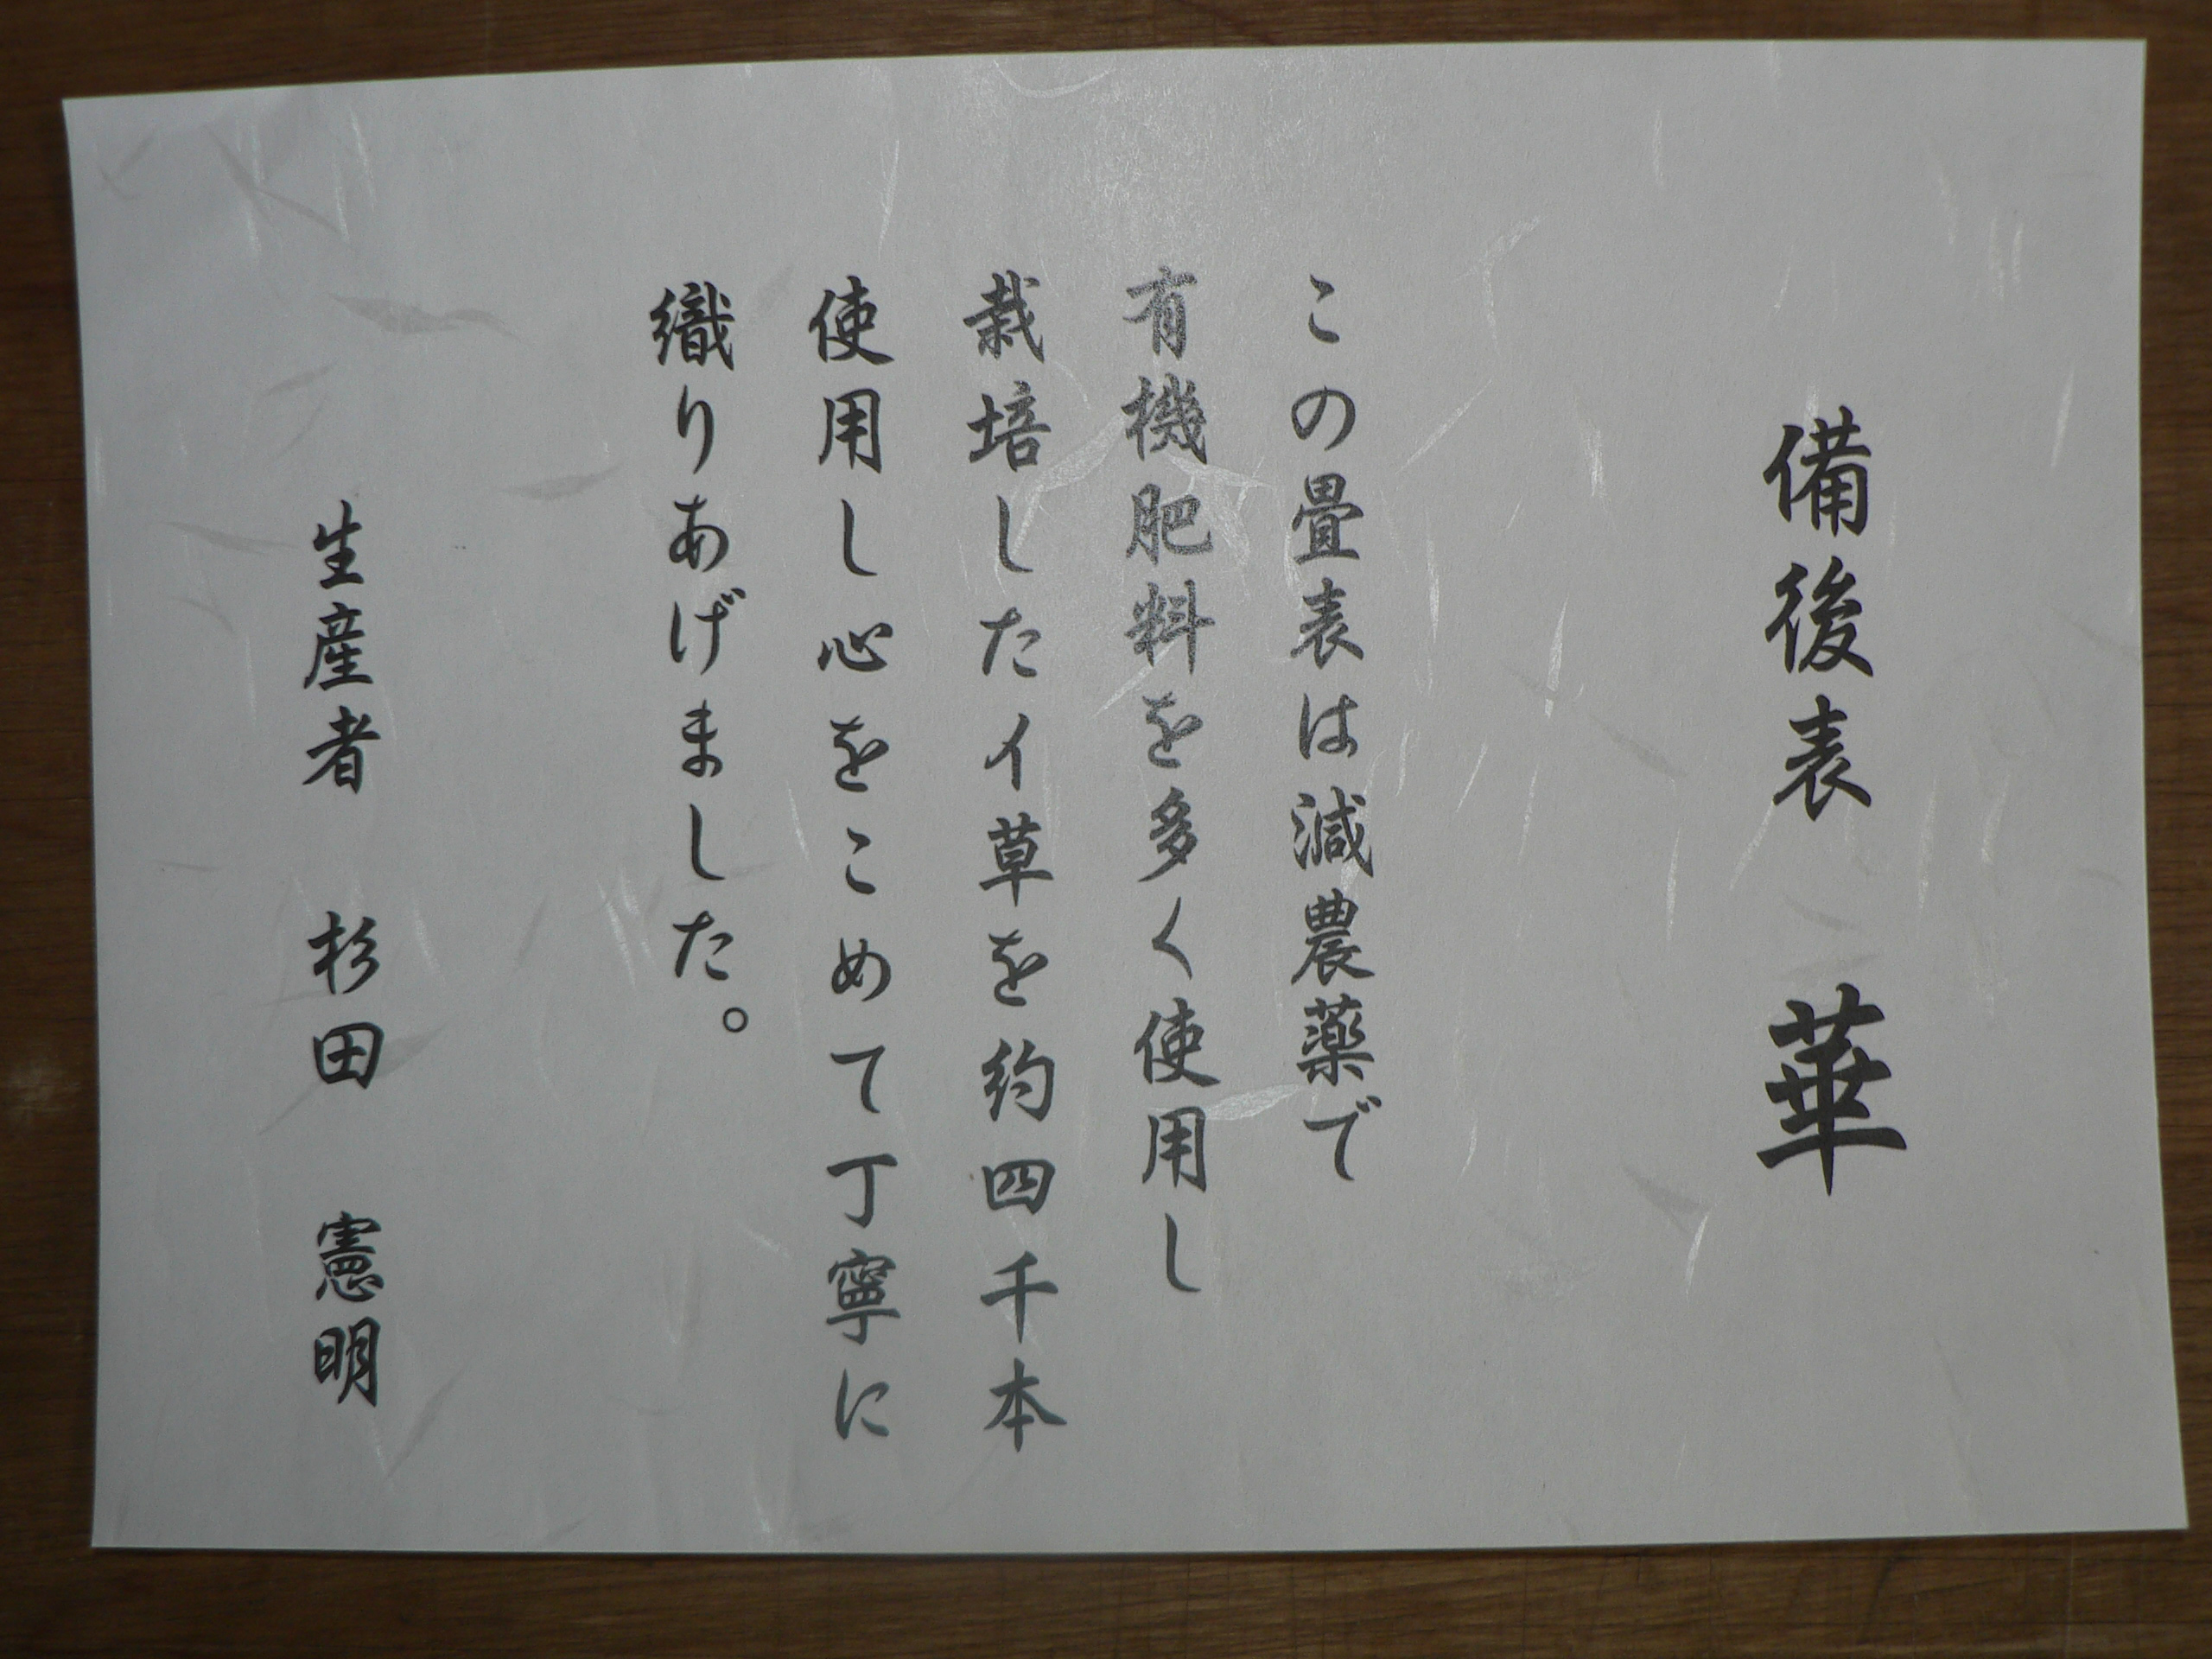 備後表　華
この畳表は減農薬で
有機肥料を多く使用し
栽培したイ草を約四千本
使用し心をこめて丁寧に
織りあげました。
生産者　杉田　憲明